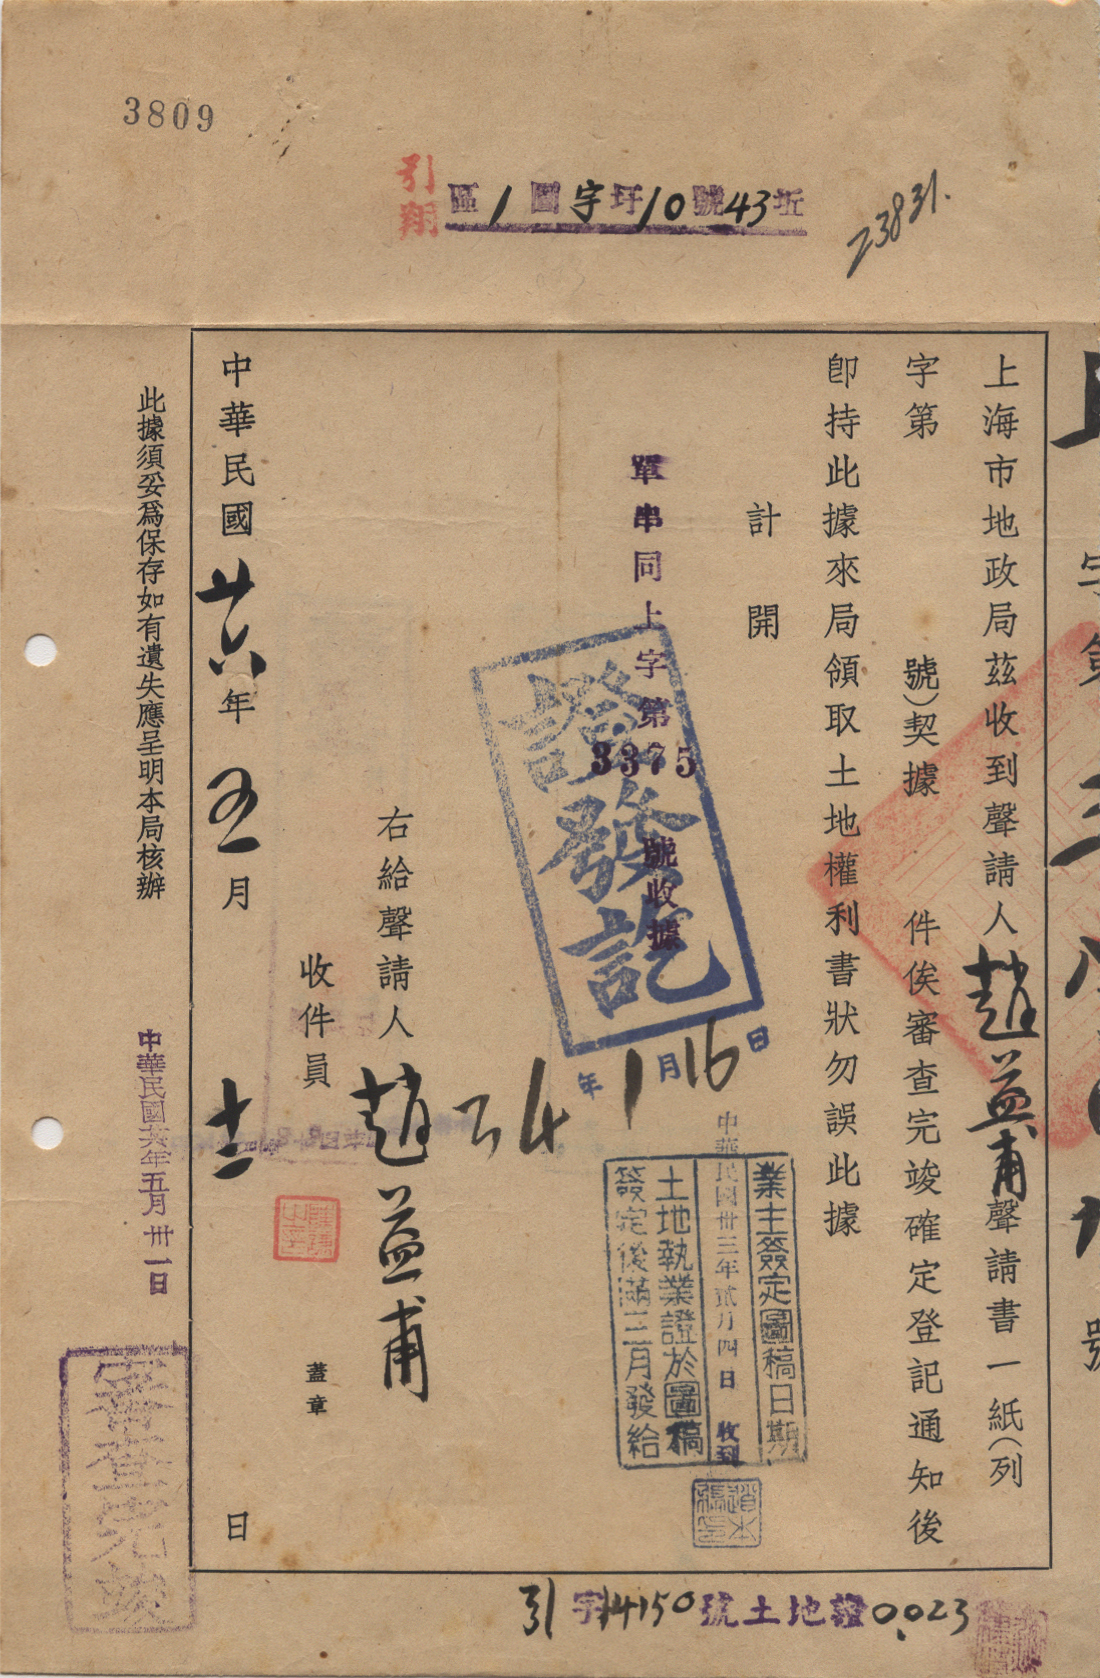 3809
引翔
區1圖字圩10號43坵
23831.
上海市地政局茲收到聲請人趙益甫聲請書一紙(列
字第 號)契據 件俟審查完竣確定登記通知後
卽持此據來局領取土地權利書狀勿誤此據
計開
單串同上字第3375號收據
證發訖
年1月16日
業主簽定圖稿日期
中華民國卅三年貳月四日收到
土地執業證於圖稿
簽定後滿三月發給
右給聲請人趙益甫
收件員
蓋章
中華民國廿六年五月十二日
此據須妥爲保存如有遺失應呈明本局核辦
中華民國廿六年五月卅一日
審查完竣
引字14150號土地證0.023